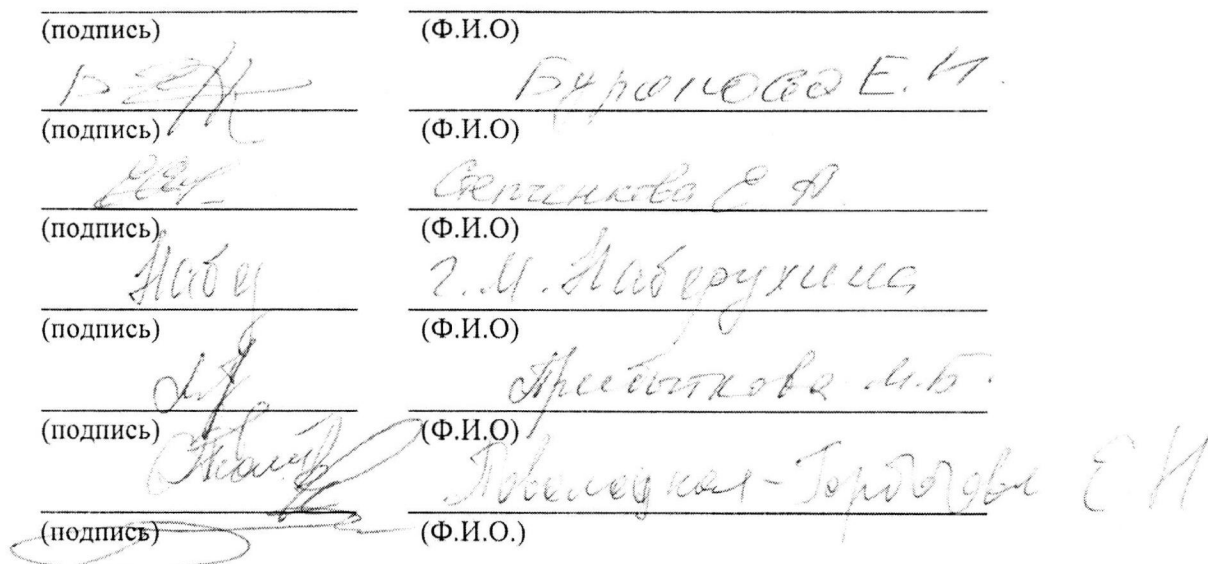 (подпись) (Ф.И.О)
Буранова Е.И.
(подпись) (Ф.И.О)
Степченкова Е А.
(подпись) (Ф.И.О)
Набе Г.М. Наберухина
(подпись) (Ф.И.О)
Прибыткова М.Б.
(подпись) (Ф.И.О)
Поволоцкая-Горбачёва Е Н
(подпись) (Ф.И.О.)